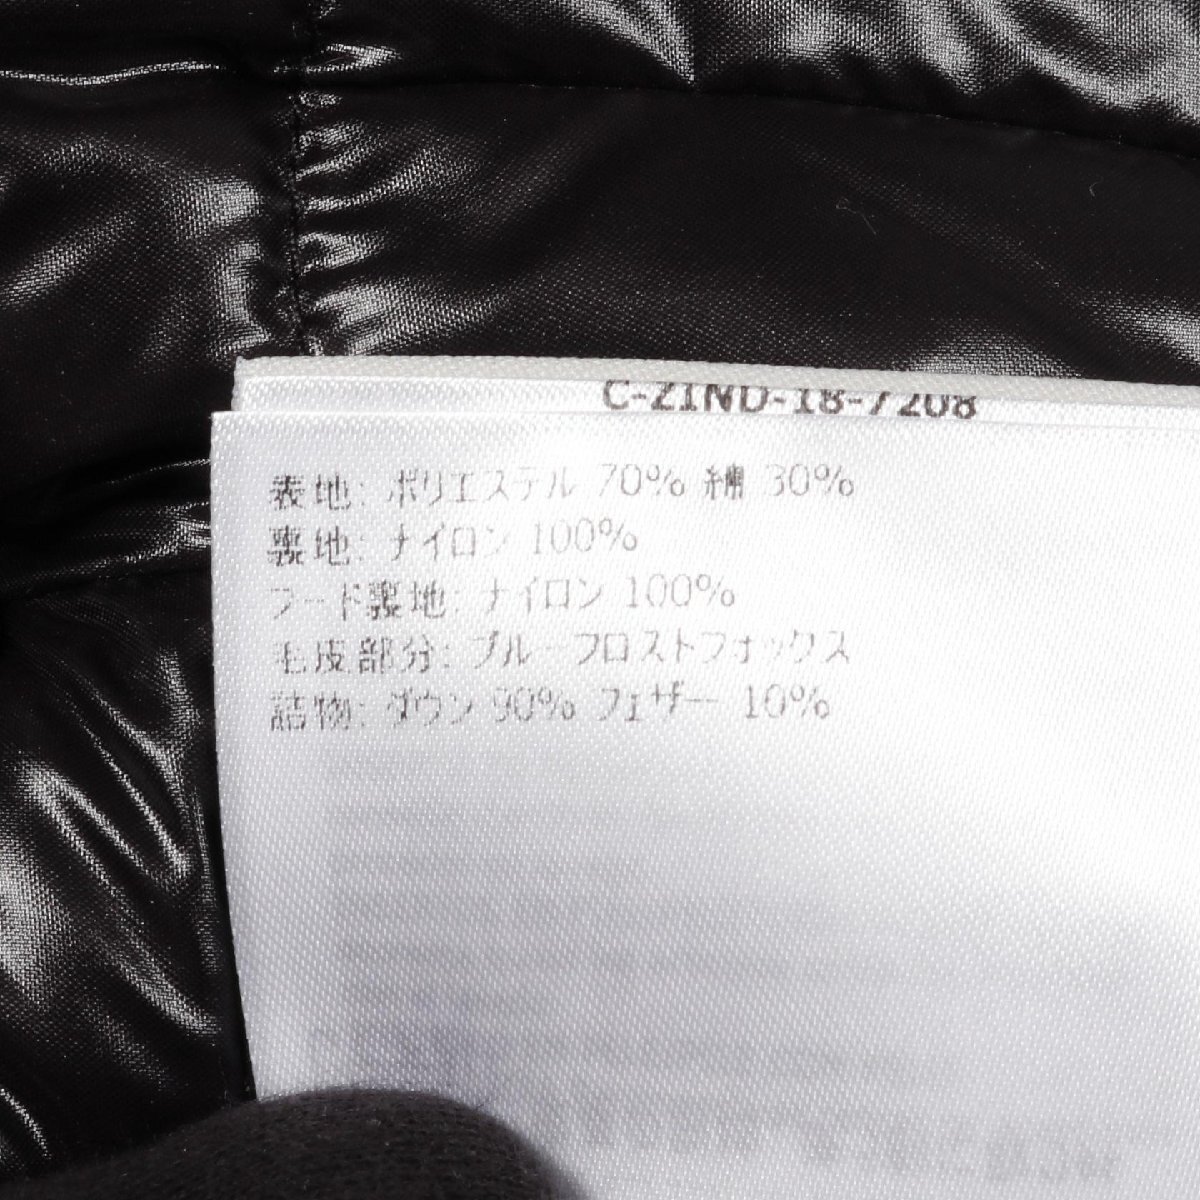 C-ZIND-18-7208
表地: ポリエステル 70% 綿 30%
裏地: ナイロン 100%
フード裏地: ナイロン 100%
毛皮部分: ブルーフロストフォックス
詰物: ダウン 90% フェザー 10%